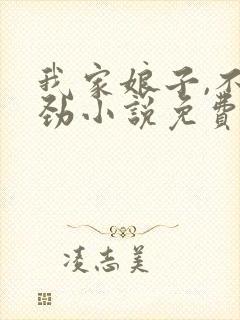 我家娘子,不
劲小説免費
凌志美